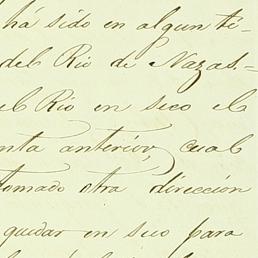 há sido en algun ti-
del Rio de Nazas.-
el Rio en seco el
nta anterior, cual
tomado otra dirección
quedar en seco para